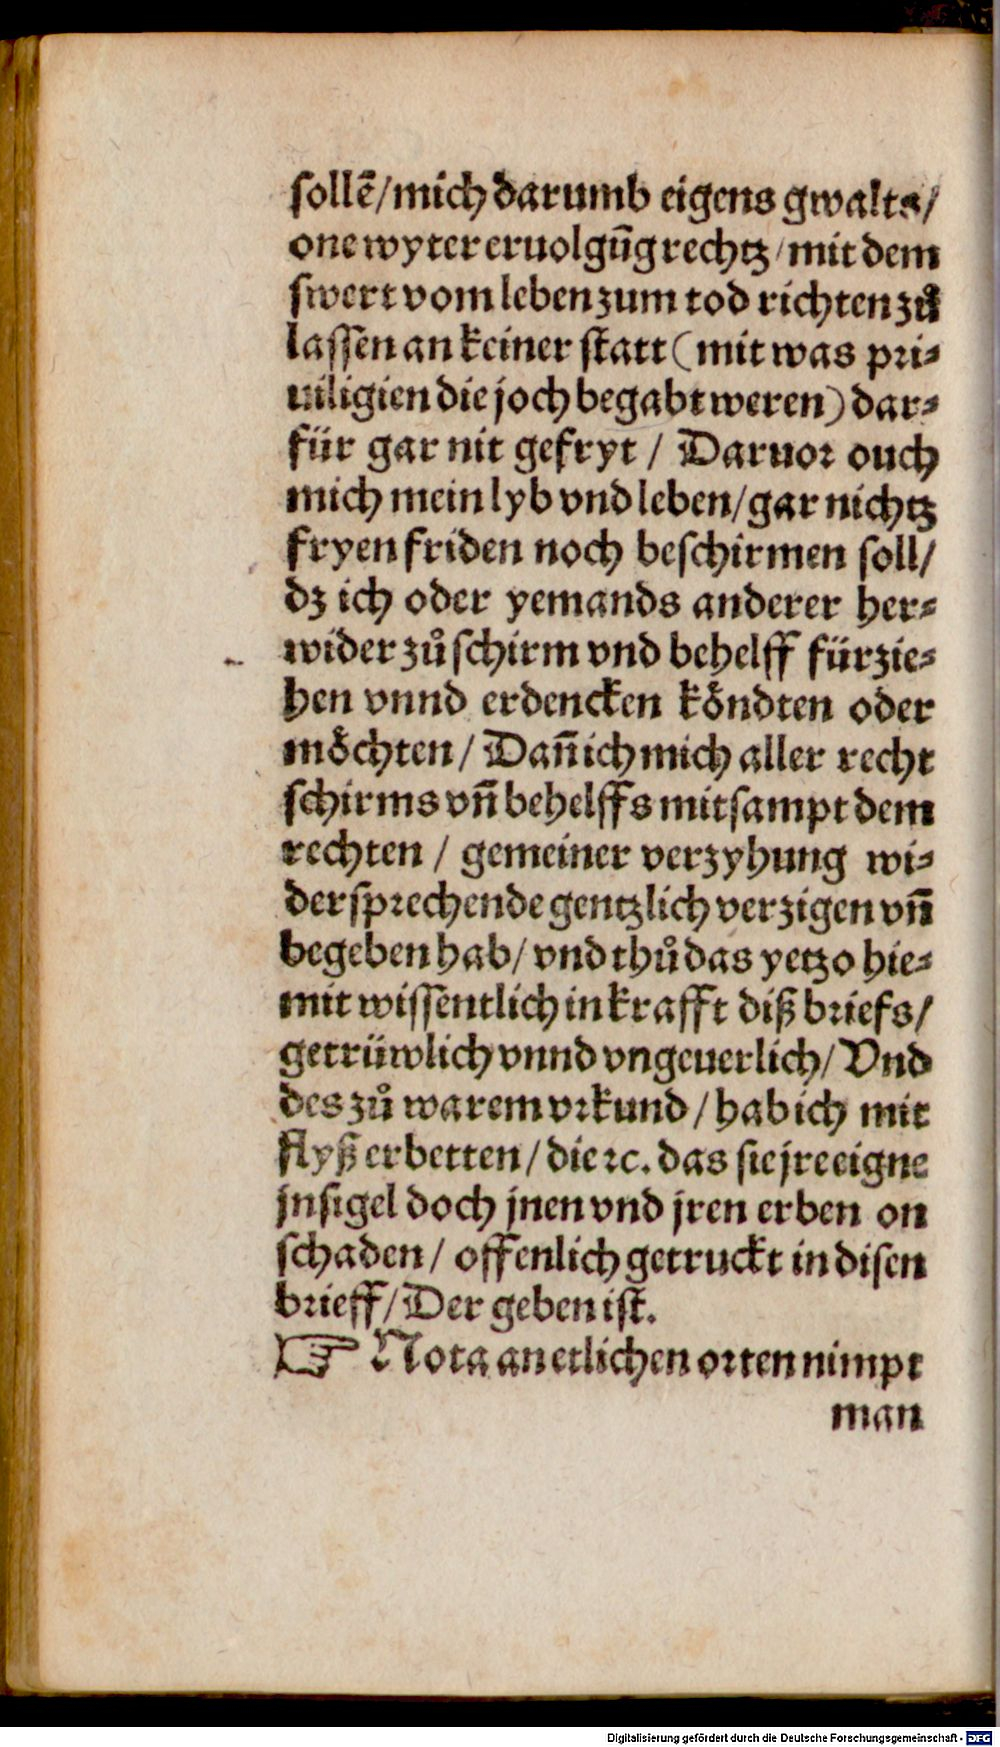 sollē/mich darumb eigens gwalts/
one wyter eruolgūg rechtz/mit dem
swert vom leben zum tod richten zů
lassen an keiner statt (mit was pri⸗
uiligien die joch begabt weren) dar⸗
für gar nit gefryt / Daruor ouch
mich mein lyb vnd leben/gar nichtz
fryen friden noch beschirmen soll/
dz ich oder yemands anderer her⸗
wider zů schirm vnd behelff fürzie⸗
hen vnnd erdencken kŏndten oder
mŏchten / Dañ ich mich aller recht
schirms vñ behelffs mitsampt dem
rechten / gemeiner verzyhung wi⸗
dersprechende gentzlich verzigen vñ
begeben hab/ vnd thů das yetzo hie⸗
mit wissentlich in krafft diß briefs/
getrüwlich vnnd vngeuerlich/ Vnd
des zů warem vrkund / hab ich mit
flyß erbetten / die ꝛc. das sie jre eigne
jnsigel doch jnen vnd jren erben on
schaden / offenlich getruckt in disen
brieff/ Der geben ist.
☞ Nota an etlichen orten nimpt
man
Digitalisierung gefördert durch die Deutsche Forschungsgemeinschaft - DFG